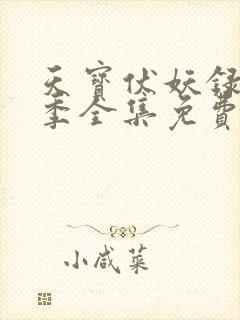 天寳伏妖録
季全集免費
小咸菜